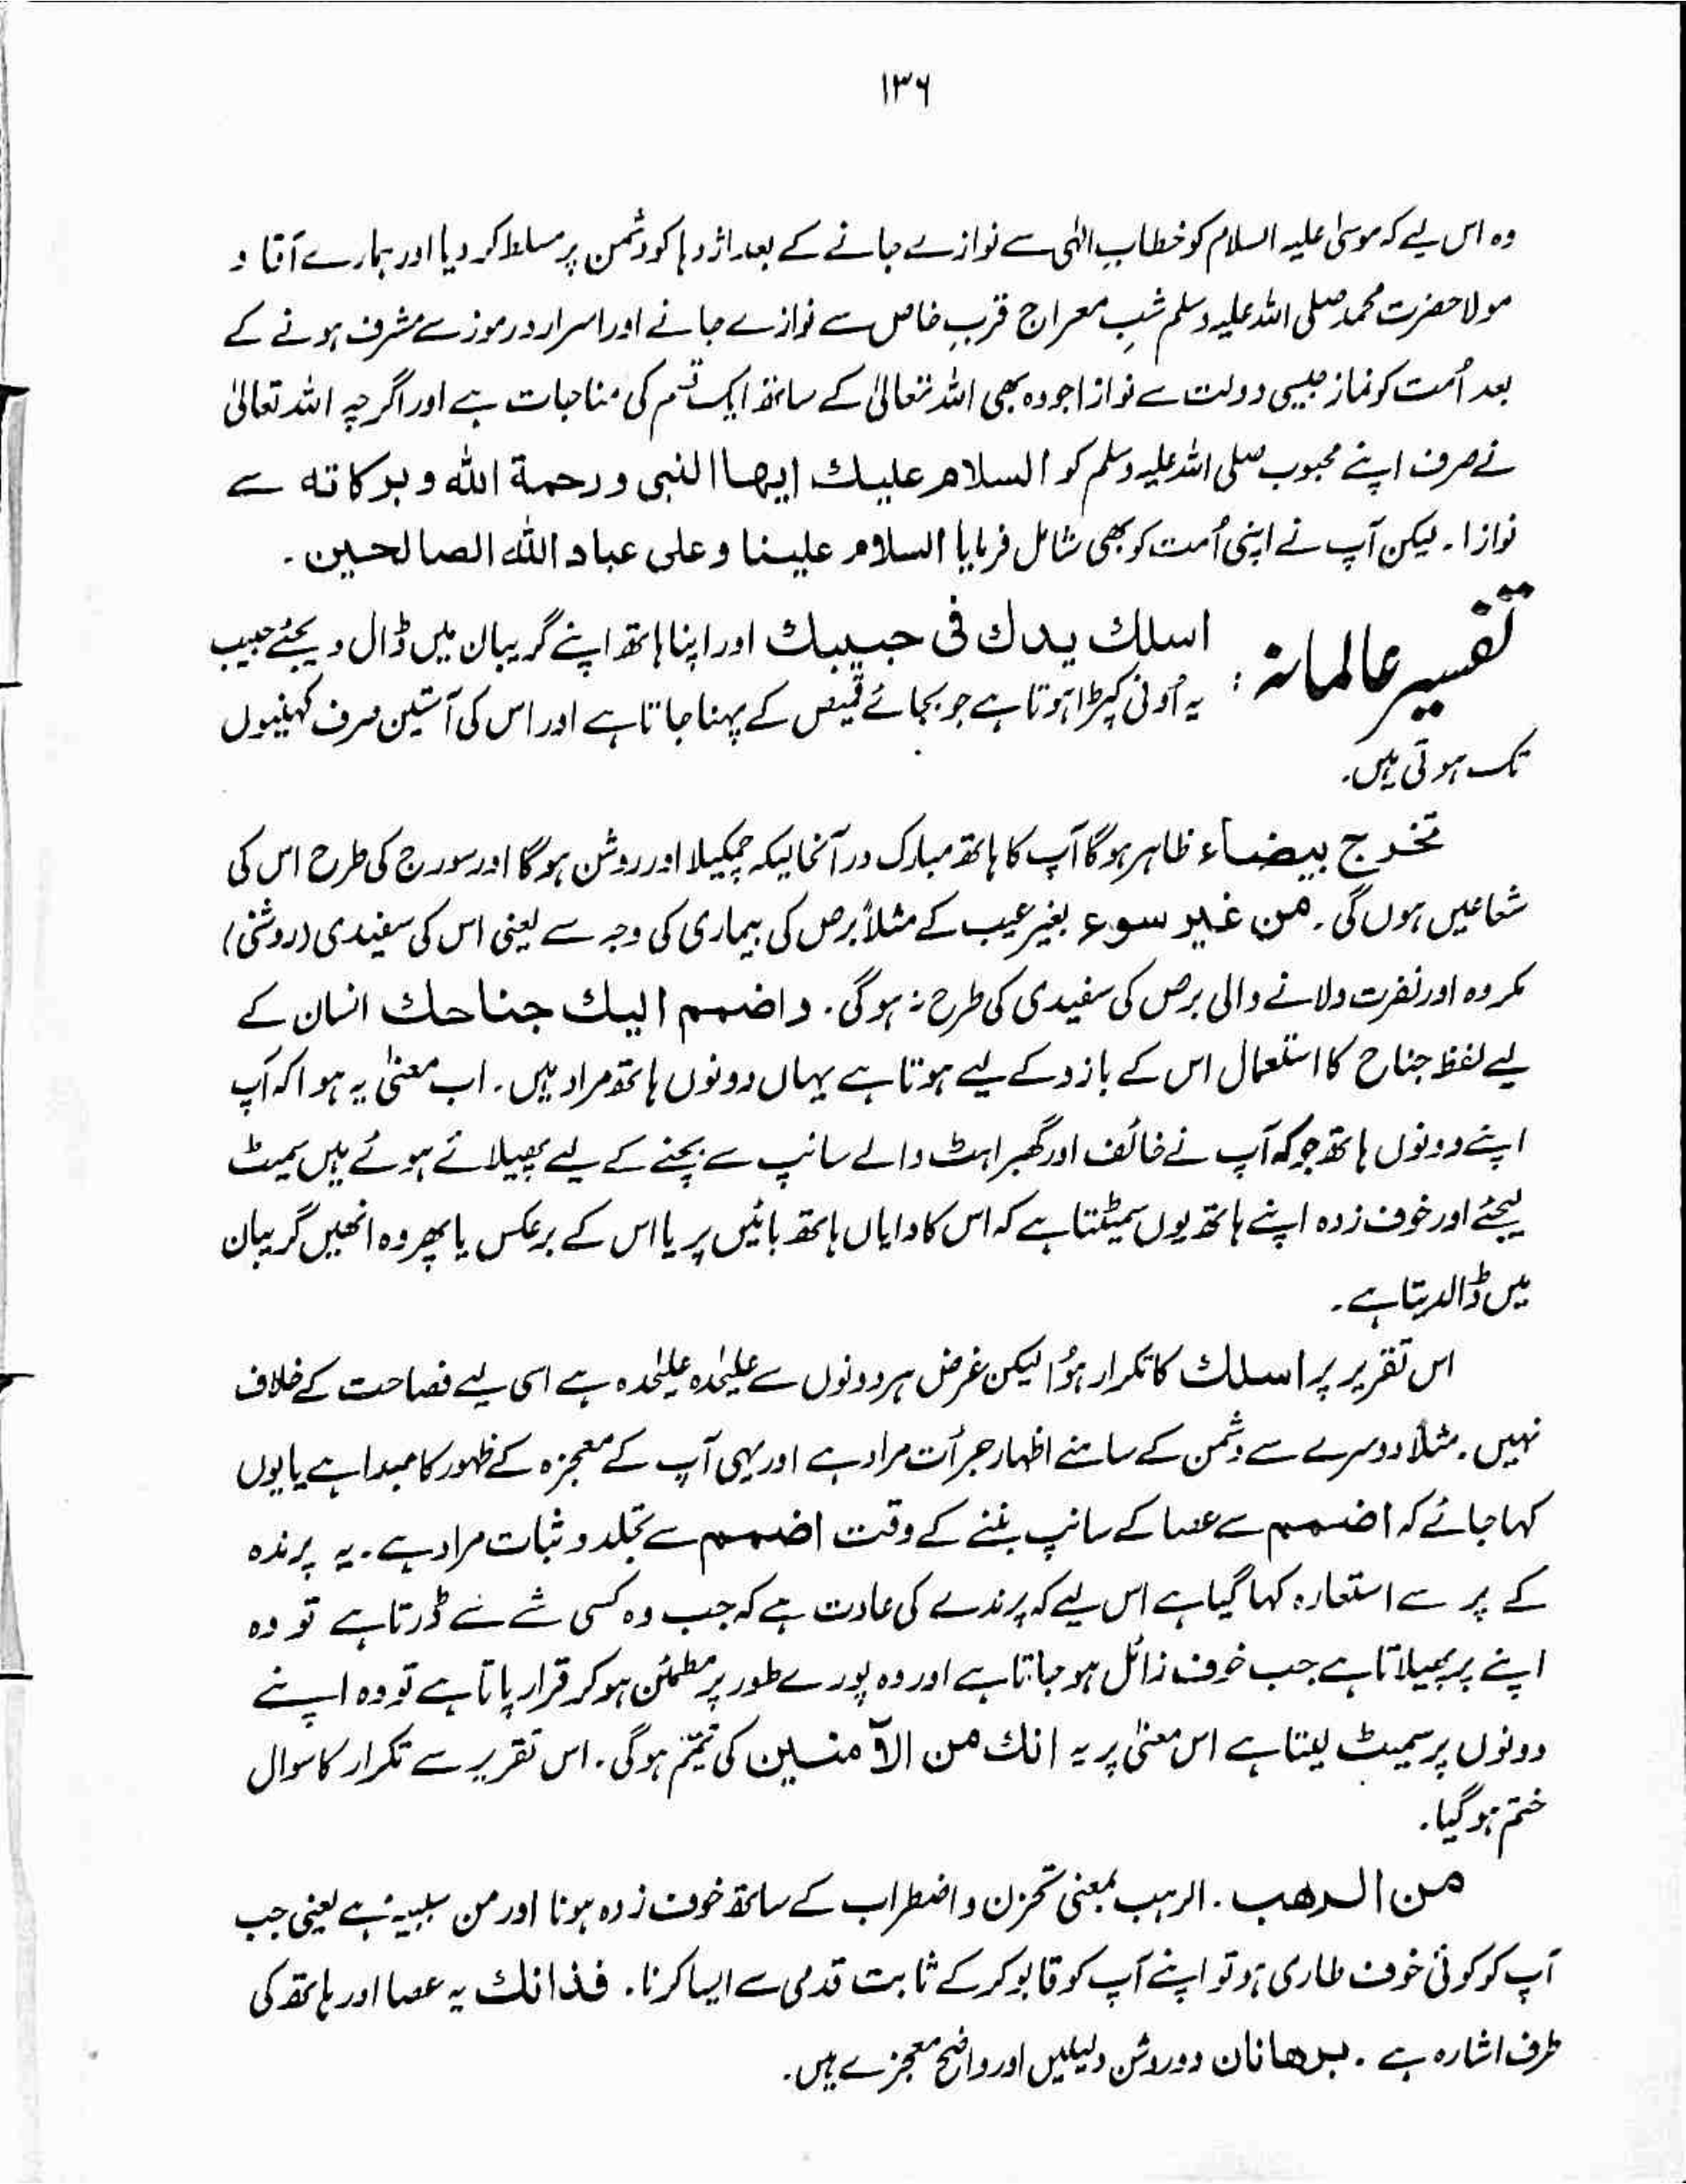 ۱۳۶
وہ اس لیے کہ موسیٰ علیہ السلام کو خطابِ الٰہی سے نوازے جانے کے بعد اژدہا کو دشمن پر مسلط کر دیا اور ہمارے آقا و
مولا حضرت محمد صلی اللہ علیہ وسلم شبِ معراج قربِ خاص سے نوازے جانے اور اسرار و رموز سے مشرف ہونے کے
بعد اُمت کو نماز جیسی دولت سے نوازا جو وہ بھی اللہ تعالیٰ کے ساتھ ایک قسم کی مناجات ہے اور اگرچہ اللہ تعالیٰ
نے صرف اپنے محبوب صلی اللہ علیہ وسلم کو السلام علیك ایھا النبی و رحمة الله و برکاته سے
نوازا ۔ لیکن آپ نے اپنی اُمت کو بھی شامل فرمایا السلام علینا و علی عباد الله الصالحین ۔
تفسیر عالمانہ : اسلك یدك فی جیبك اور اپنا ہاتھ اپنے گریبان میں ڈال دیجئے جیب
یہ اُونی کپڑا ہوتا ہے جو بجائے قمیص کے پہنا جاتا ہے اور اس کی آستین صرف کہنیوں
تک ہوتی ہیں۔
تخرج بیضاء ظاہر ہوگا آپ کا ہاتھ مبارک درآنحالیکہ چمکیلا اور روشن ہوگا اور سورج کی طرح اس کی
شعاعیں ہوں گی ۔ من غیر سوء بغیر عیب کے مثلاً برص کی بیماری کی وجہ سے یعنی اس کی سفیدی (روشنی)
مکروہ اور نفرت دلانے والی برص کی سفیدی کی طرح نہ ہوگی۔ واضمم الیك جناحك انسان کے
لیے لفظ جناح کا استعمال اس کے بازو کے لیے ہوتا ہے یہاں دونوں ہاتھ مراد ہیں۔ اب معنیٰ یہ ہوا کہ آپ
اپنے دونوں ہاتھ جو کہ آپ نے خائف اور گھبراہٹ والے سانپ سے بچنے کے لیے پھیلائے ہوئے ہیں سمیٹ
لیجئے اور خوف زدہ اپنے ہاتھ یوں سمیٹتا ہے کہ اس کا دایاں ہاتھ بائیں پر یا اس کے برعکس یا پھر وہ انھیں گریبان
میں ڈالدیتا ہے ۔
اس تقریر پر اسلك کا تکرار ہُوا لیکن غرض ہر دونوں سے علیٰحدہ علیٰحدہ ہے اسی لیے فصاحت کے خلاف
نہیں ۔ مثلاً دوسرے سے دشمن کے سامنے اظہار جرأت مراد ہے اور یہی آپ کے معجزہ کے ظہور کا مبدا ہے یا یوں
کہا جائے کہ اضمم سے عصا کے سانپ بننے کے وقت اضمم سے تجلد و ثبات مراد ہے ۔ یہ پرندہ
کے پر سے استعارہ کہا گیا ہے اس لیے کہ پرندے کی عادت ہے کہ جب وہ کسی شے سے ڈرتا ہے تو وہ
اپنے پر پھیلاتا ہے جب خوف زائل ہو جاتا ہے اور وہ پورے طور پر مطمئن ہو کر قرار پاتا ہے تو وہ اپنے
دونوں پر سمیٹ لیتا ہے اس معنیٰ پر یہ انك من الآمنین کی تتمیم ہوگی ۔ اس تقریر سے تکرار کا سوال
ختم ہوگیا ۔
من الرهب ۔ الرہب بمعنی تحزن و اضطراب کے ساتھ خوف زدہ ہونا اور من سببیہ ہے یعنی جب
آپ کو کوئی خوف طاری ہو تو اپنے آپ کو قابو کر کے ثابت قدمی سے ایسا کرنا۔ فذانك یہ عصا اور ہاتھ کی
طرف اشارہ ہے ۔ برهانان دو روشن دلیلیں اور واضح معجزے ہیں۔